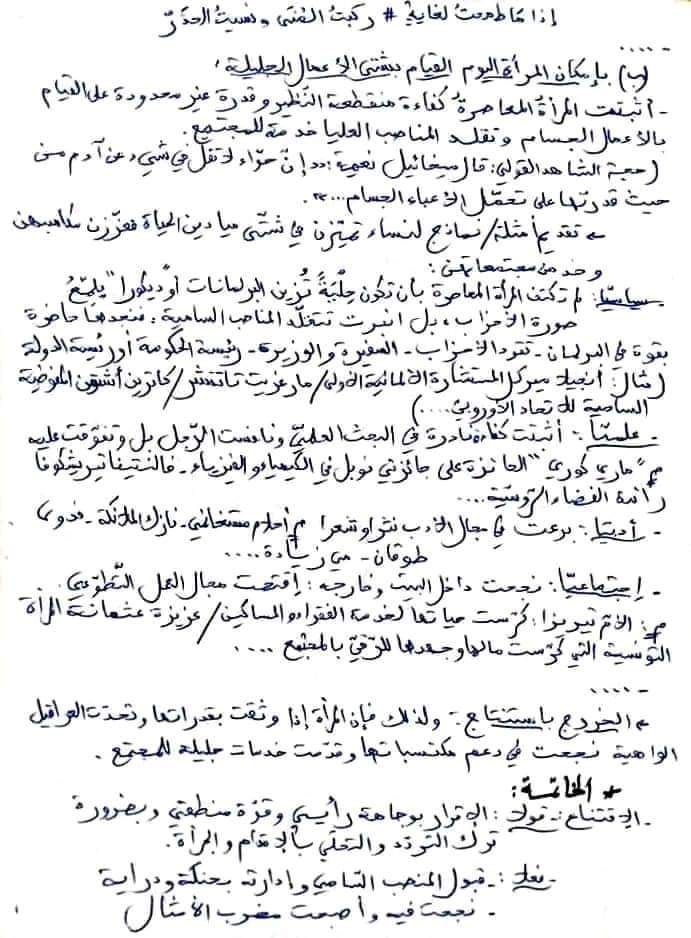 إذا ما طمحت لغاية # ركبت المنى ونسيت الحذر
.....
(ب) بإمكان المرأة اليوم القيام بشتى الأعمال الجليلة:
- أثبتت المرأة المعاصرة كفاءة منقطعة النظير وقدرة غير محدودة على القيام
بالأعمال الجسام وتقلد المناصب العليا خدمة للمجتمع.
(حجة الشاهد القولي: قال ميخائيل نعيمة: «إنّ حوّاء لا تقل في شيء عن آدم من
حيث قدرتها على تحمّل الأعباء الجسام...».
← تقديم أمثلة/نماذج لنساء تميّزن في شتّى ميادين الحياة فعزّزن مكاسبهن
وخدمن مجتمعاتهنّ:
- سياسيّا: لم تكتف المرأة المعاصرة بأن تكون حلْيَةً تُزين البرلمانات أو "ديكورا" يلمّعُ
صورة الأحزاب، بل انبرت تتقلّد المناصب السامية: فنجدها حاضرة
بقوة في البرلمان - تقود الأحزاب - السفيرة والوزيرة - رئيسة الحكومة أو رئيسة الدولة
(مثال: أنجيلا ميركل المستشارة الألمانية الأولى/مارغريت تاتشر/كاترين أشتون المفوضية
السامية للاتحاد الأوروبي....)
- علميّا: أثبتت كفاءة نادرة في البحث العلميّ ونافست الرّجل بل وتفوّقت عليه
م "ماري كوري" الحائزة على جائزتي نوبل في الكيمياء والفيزياء - فالنتينا تيريشكوفا
رائدة الفضاء الروسيّة....
- أدبيّا: برعت في مجال الأدب نثرا وشعرا م أحلام مستغانمي - نازك الملائكة - فدوى
طوقان - مي زيادة....
- إجتماعيّا: نجحت داخل البيت وخارجه: إقتحمت مجال العمل التّطوّعي
م: الأم تيريزا: كرّست حياتها لخدمة الفقراء والمساكين/عزيزة عثمانة المرأة
التونسية التي كرّست مالها وجهدها للرّقيّ بالمجتمع....
.....
* الخروج باستنتاج: ولذلك فإن المرأة إذا وثقت بقدراتها وتحدّت العراقيل
الواهية نجحت في دعم مكتسباتها وقدّمت خدمات جليلة للمجتمع.
* الخاتمة:
- الاقتناع: - قولا: الإقرار بوجاهة رأيي وقوّة منطقي وبضرورة
ترك التردّد والتحلّي بالإقدام والجرأة.
- فعلا: - قبول المنصب السّامي وإدارته بحنكة ودراية
- نجحت فيه وأصبحت مضرب الأمثال